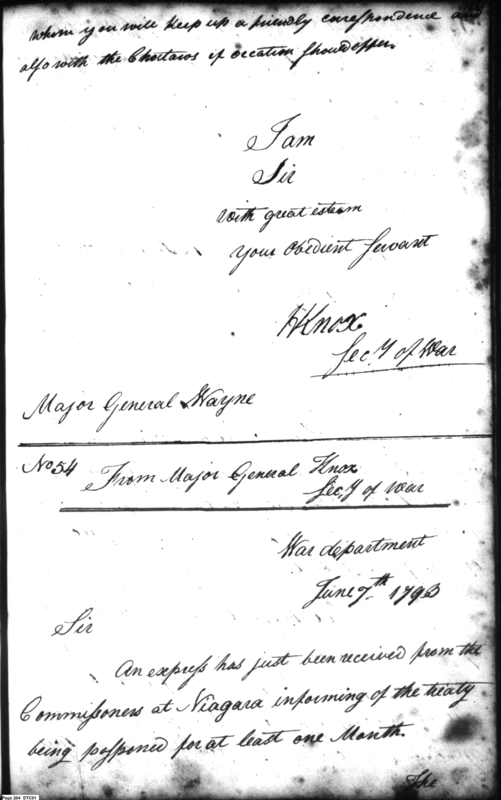 whom you will keep up a friendly correspondence and
also with the Choctaws if occation should offer.
I am
Sir
with great esteem
your obedient servant
HKnox
Secy of War
Major General Wayne
No 54
From Major General Knox
Secy of War
War department
June 7th 1793
Sir
An express has just been received from the
Commissoners at Niagara informing of the treaty
being postponed for at least one Month.
The
Page 204 DTC01